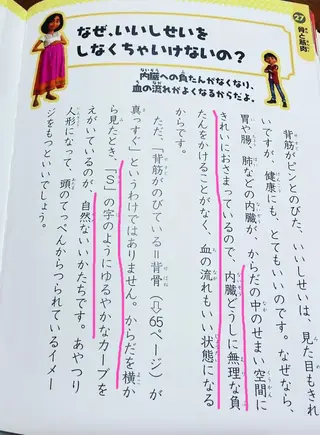 27
骨と筋肉
なぜ、いいしせいを
しなくちゃいけないの?
内臓への負たんがなくなり、
血の流れがよくなるからだよ。
背筋がピンとのびた、いいしせいは、見た目もきれ
いですが、健康にも、とてもいいのです。なぜなら、
胃や腸、肺などの内臓が、からだの中のせまい空間に
きれいにおさまっているので、内臓どうしに無理な負
たんをかけることがなく、血の流れもいい状態になる
からです。
ただ、「背筋がのびている=背骨(⇨65ページ)が
真っすぐ」というわけではありません。からだを横か
ら見たとき、「S」の字のようにゆるやかなカーブを
えがいているのが、自然ないいかたちです。あやつり
人形になって、頭のてっぺんからつられているイメー
ジをもつといいでしょう。